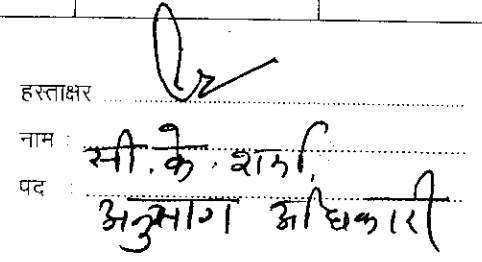 हस्ताक्षर
नाम : सी. के. शर्मा,
पद : अनुभाग अधिकारी